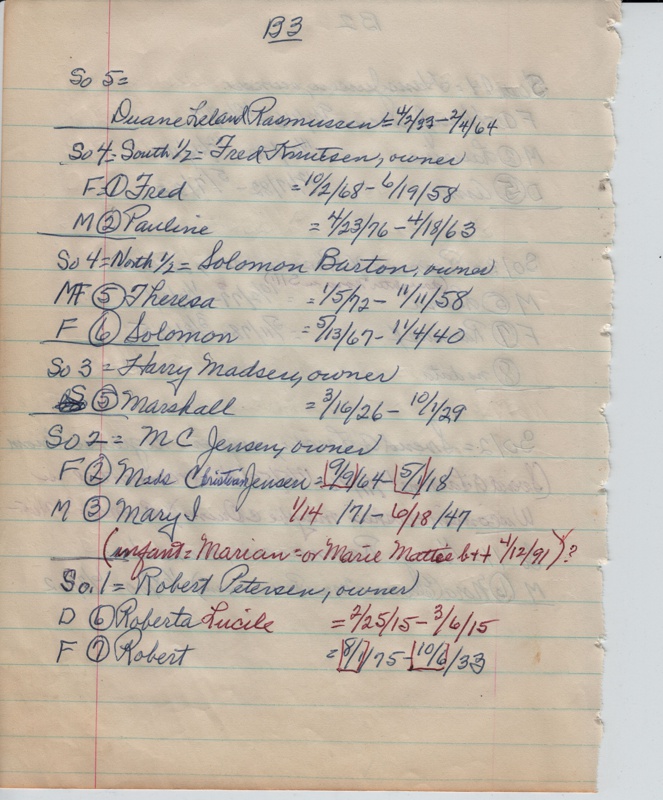 B3
So 5=
Duane Leland Rasmussen = 4/2/33 - 2/4/64
So 4 = South 1/2 = Fred Knutsen, owner
F ① Fred = 10/2/68 - 6/19/58
M ② Pauline = 4/23/76 - 4/18/63
So 4 = North 1/2 = Solomon Barton, owner
MF ⑤ Theresa = 1/5/72 - 11/11/58
F ⑥ Solomon = 5/13/67 - 11/4/40
So 3 = Harry Madsen, owner
S ⑤ Marshall = 3/16/26 - 10/1/29
So 2 = M C Jensen, owner
F ② Mads Christian Jensen = 9/9/64 - 5/1/18
M ③ Mary I 1/14 /71 - 6/18/47
(infant = Marian = or Marie Mattie b++ 4/12/91)?
So. 1 = Robert Petersen, owner
D ⑥ Roberta Lucile = 2/25/15 - 3/6/15
F ⑦ Robert = 8/1/75 - 10/6/33